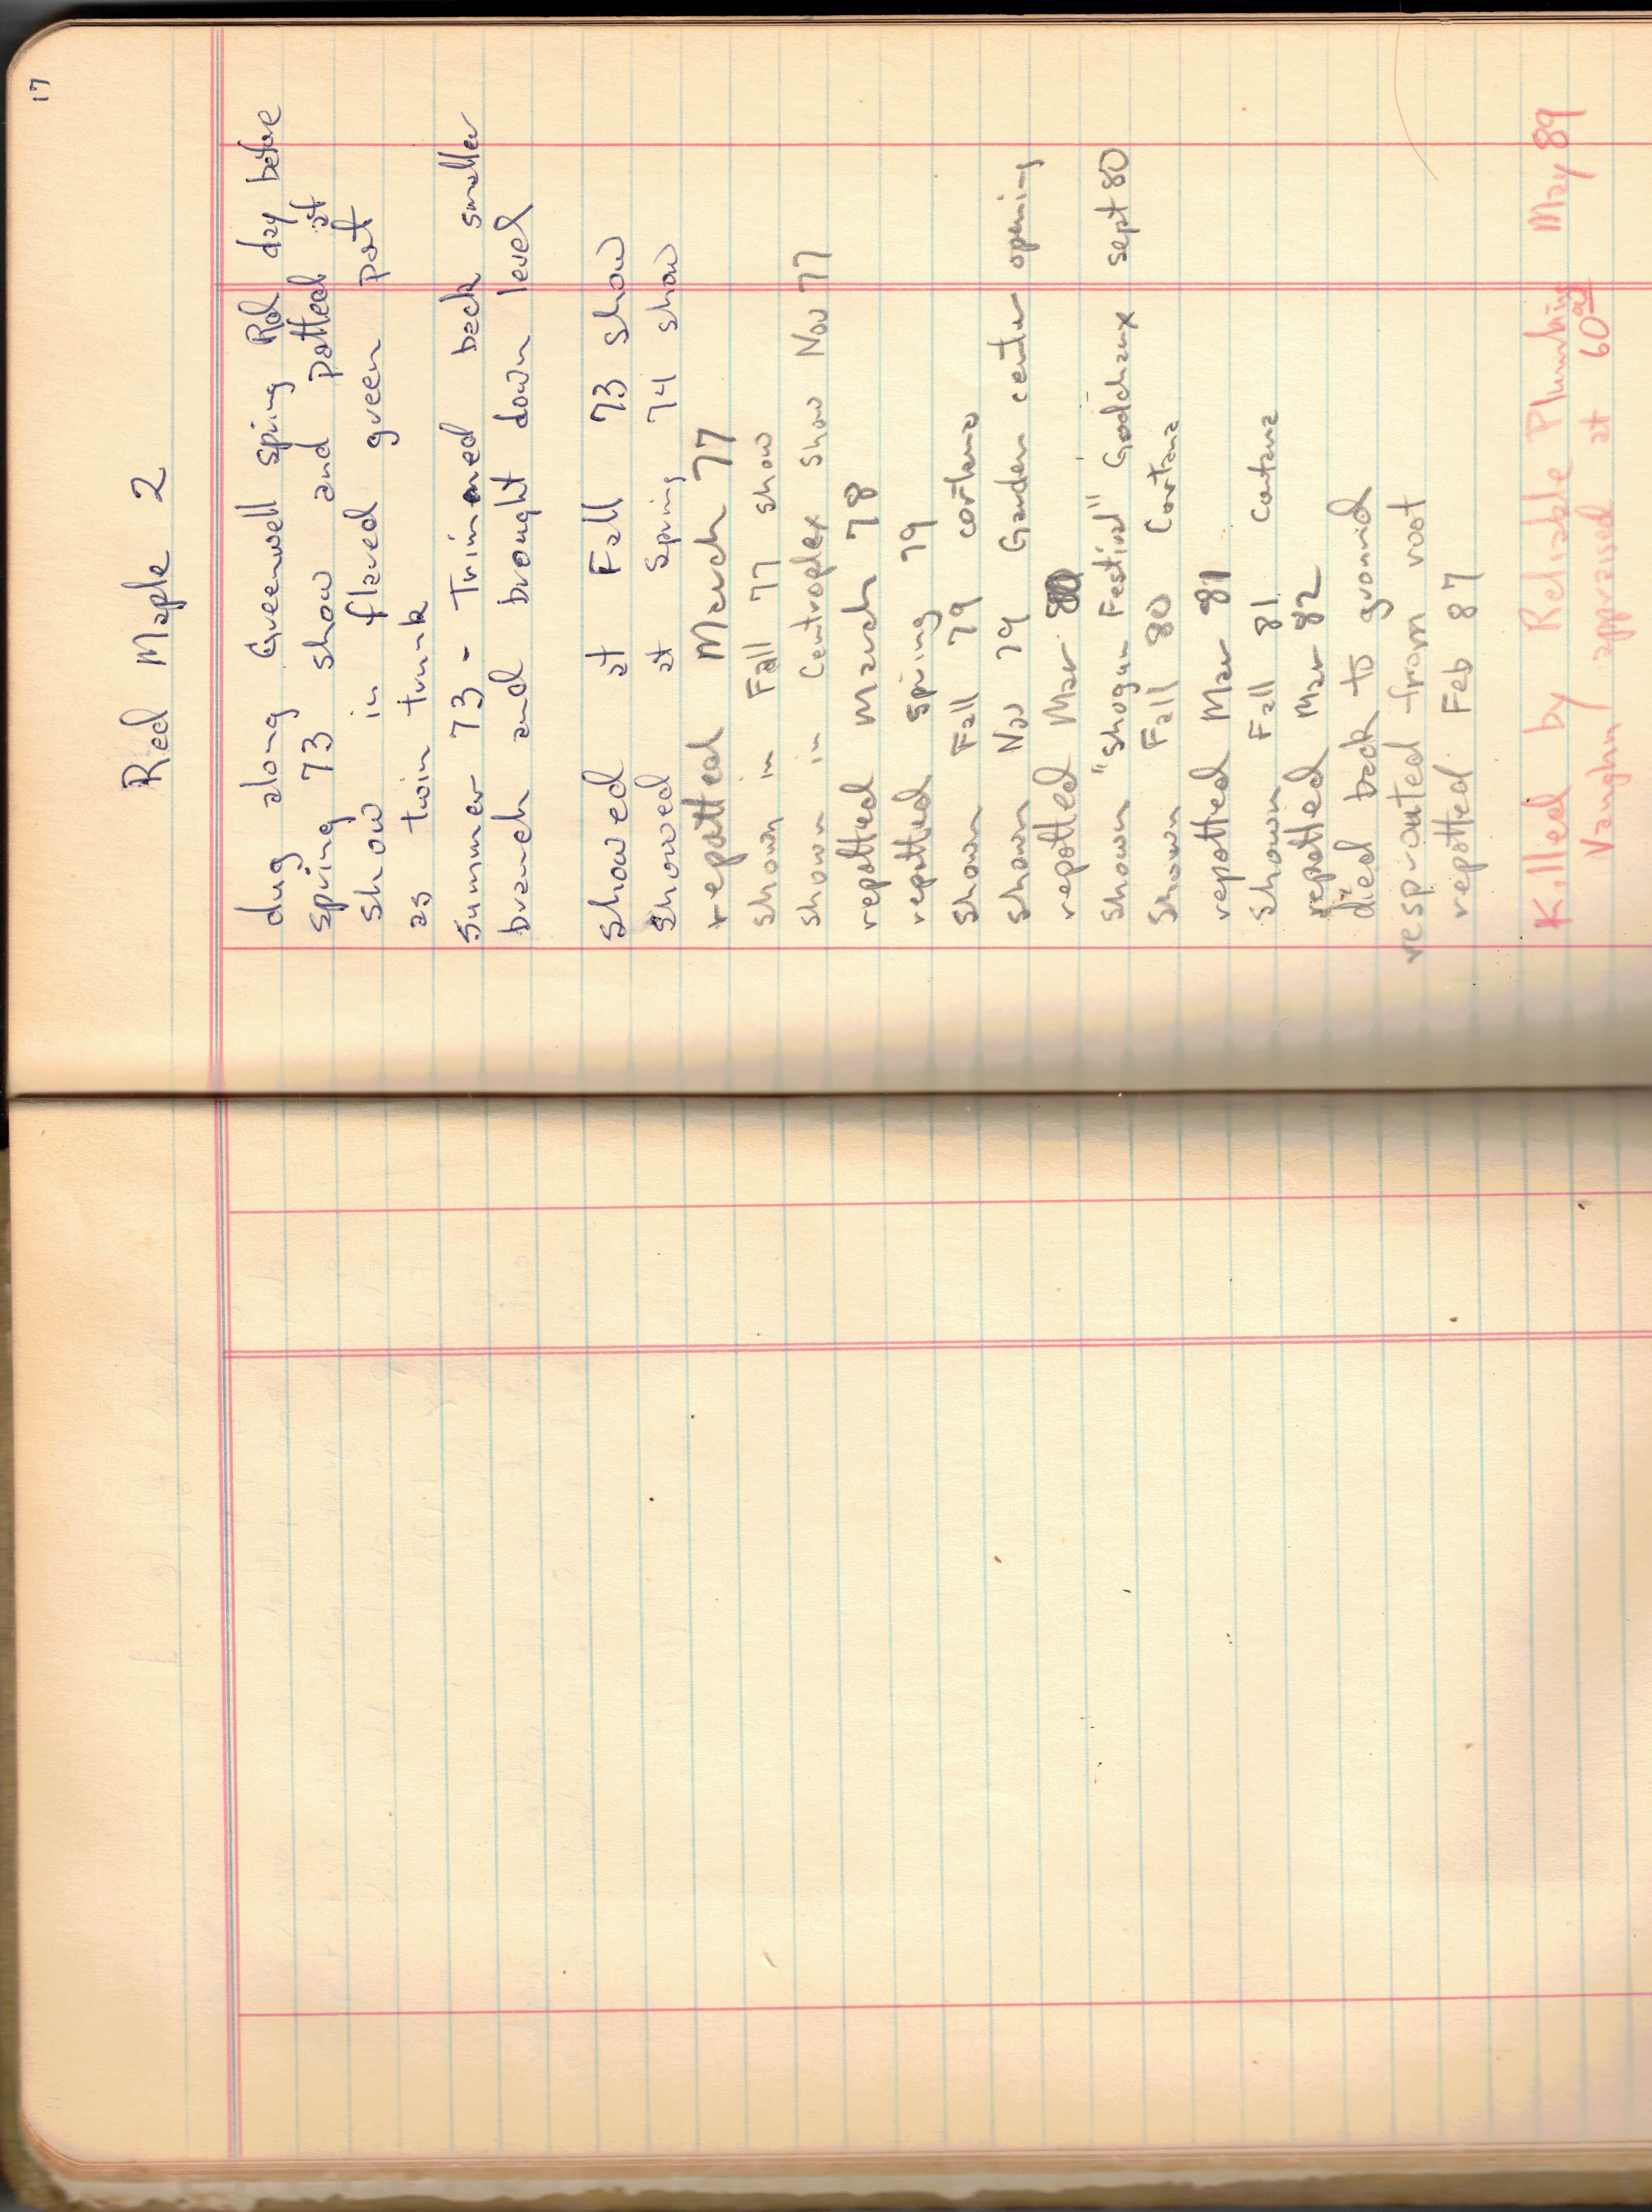 17
Red Maple 2
dug along Greenwell spring Rd day before
spring 73 show and potted at
show in flared green pot
as twin trunk
summer 73 - Trimmed back smaller
branch and brought down level
showed at Fall 73 show
showed at Spring 74 show
repotted March 77
shown in Fall 77 show
shown in Centroplex Show Nov 77
repotted March 78
repotted spring 79
shown Fall 79 cortana
shown Nov 79 Garden center opening
repotted Mar 80
shown "Shogun Festival" Godchaux sept 80
Shown Fall 80 Cortana
repotted Mar 81
shown Fall 81 Cortana
repotted Mar 82
died back to ground
resprouted from root
repotted Feb 87
Killed by Reliable Plumbing May 89
Vaughn appraised at 60 00